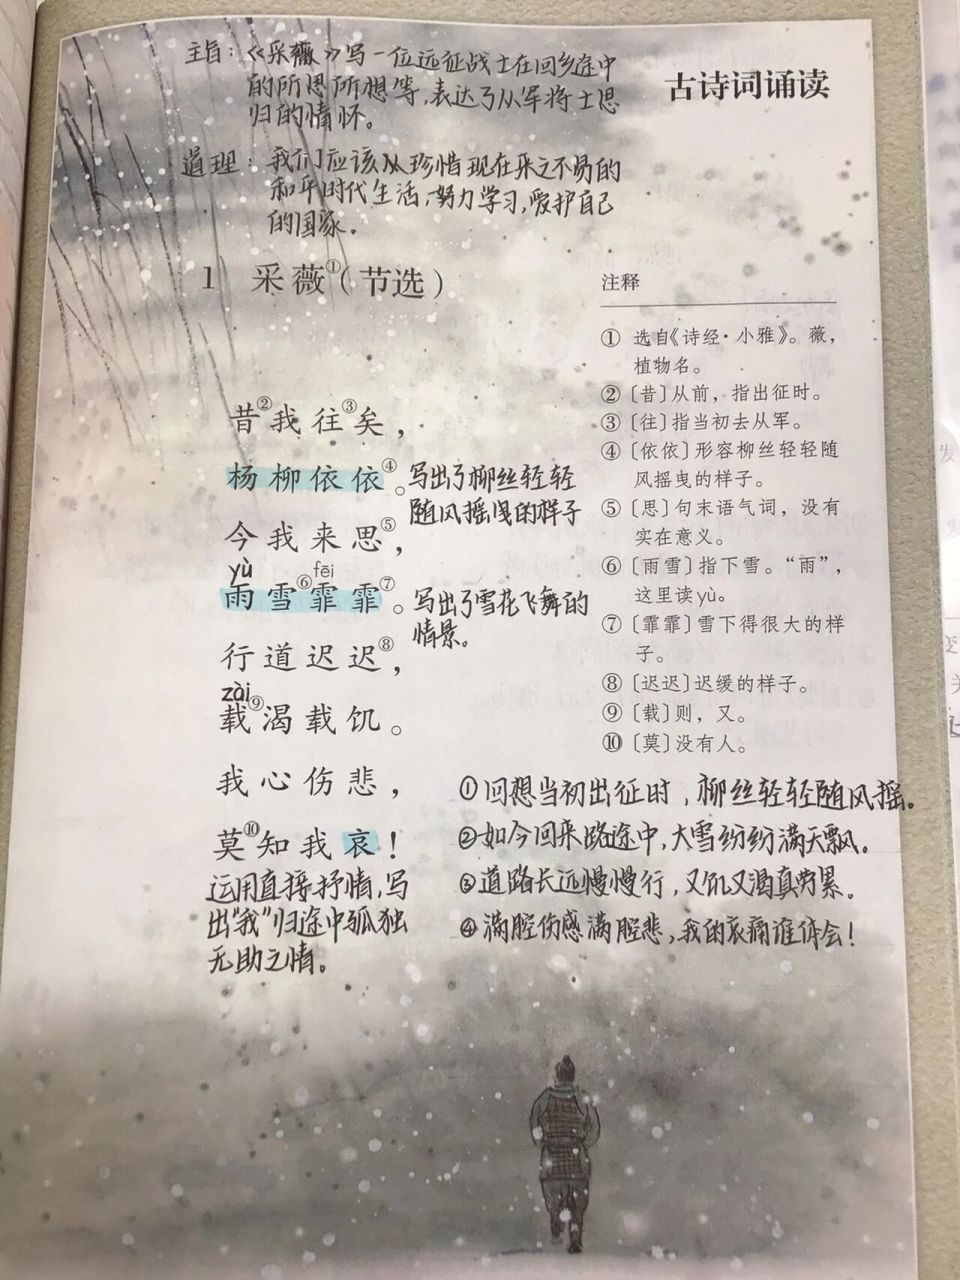 主旨：《采薇》写一位远征战士在回乡途中
的所思所想等，表达了从军将士思
归的情怀。
古诗词诵读
道理：我们应该从珍惜现在来之不易的
和平时代生活，努力学习，爱护自己
的国家。
1 采薇①（节选）
昔②我往③矣，
杨柳依依④。
写出了柳丝轻轻
随风摇曳的样子
今我来思⑤，
yù
fēi
雨雪⑥霏霏⑦。
写出了雪花飞舞的
情景。
行道迟迟⑧，
zài
载⑨渴载饥。
我心伤悲，
莫⑩知我哀！
运用直接抒情，写
出“我”归途中孤独
无助之情。
注释
① 选自《诗经·小雅》。薇，
植物名。
② 〔昔〕从前，指出征时。
③ 〔往〕指当初去从军。
④ 〔依依〕形容柳丝轻轻随
风摇曳的样子。
⑤ 〔思〕句末语气词，没有
实在意义。
⑥ 〔雨雪〕指下雪。“雨”，
这里读yù。
⑦ 〔霏霏〕雪下得很大的样
子。
⑧ 〔迟迟〕迟缓的样子。
⑨ 〔载〕则，又。
⑩ 〔莫〕没有人。
①回想当初出征时，柳丝轻轻随风摇。
②如今回来路途中，大雪纷纷满天飘。
③道路长远慢慢行，又饥又渴真劳累。
④满腔伤感满腔悲，我的哀痛谁体会！